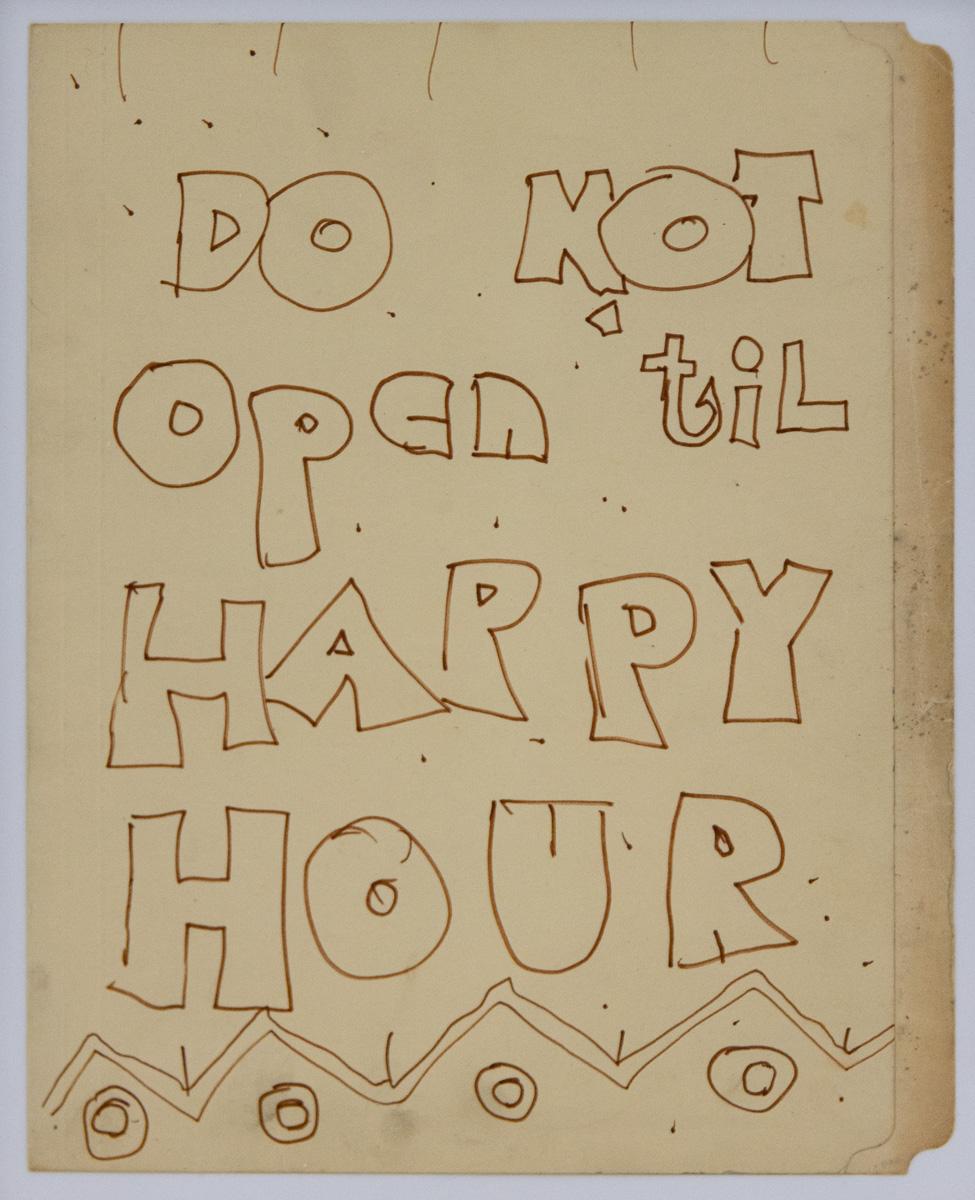 DO NOT
Open 'til
HAPPY
HOUR